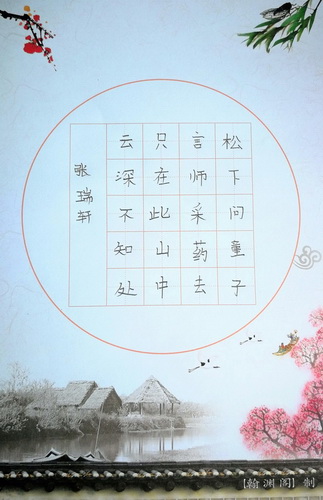 松下问童子
言师采药去
只在此山中
云深不知处
张瑞轩
【翰渊阁】制